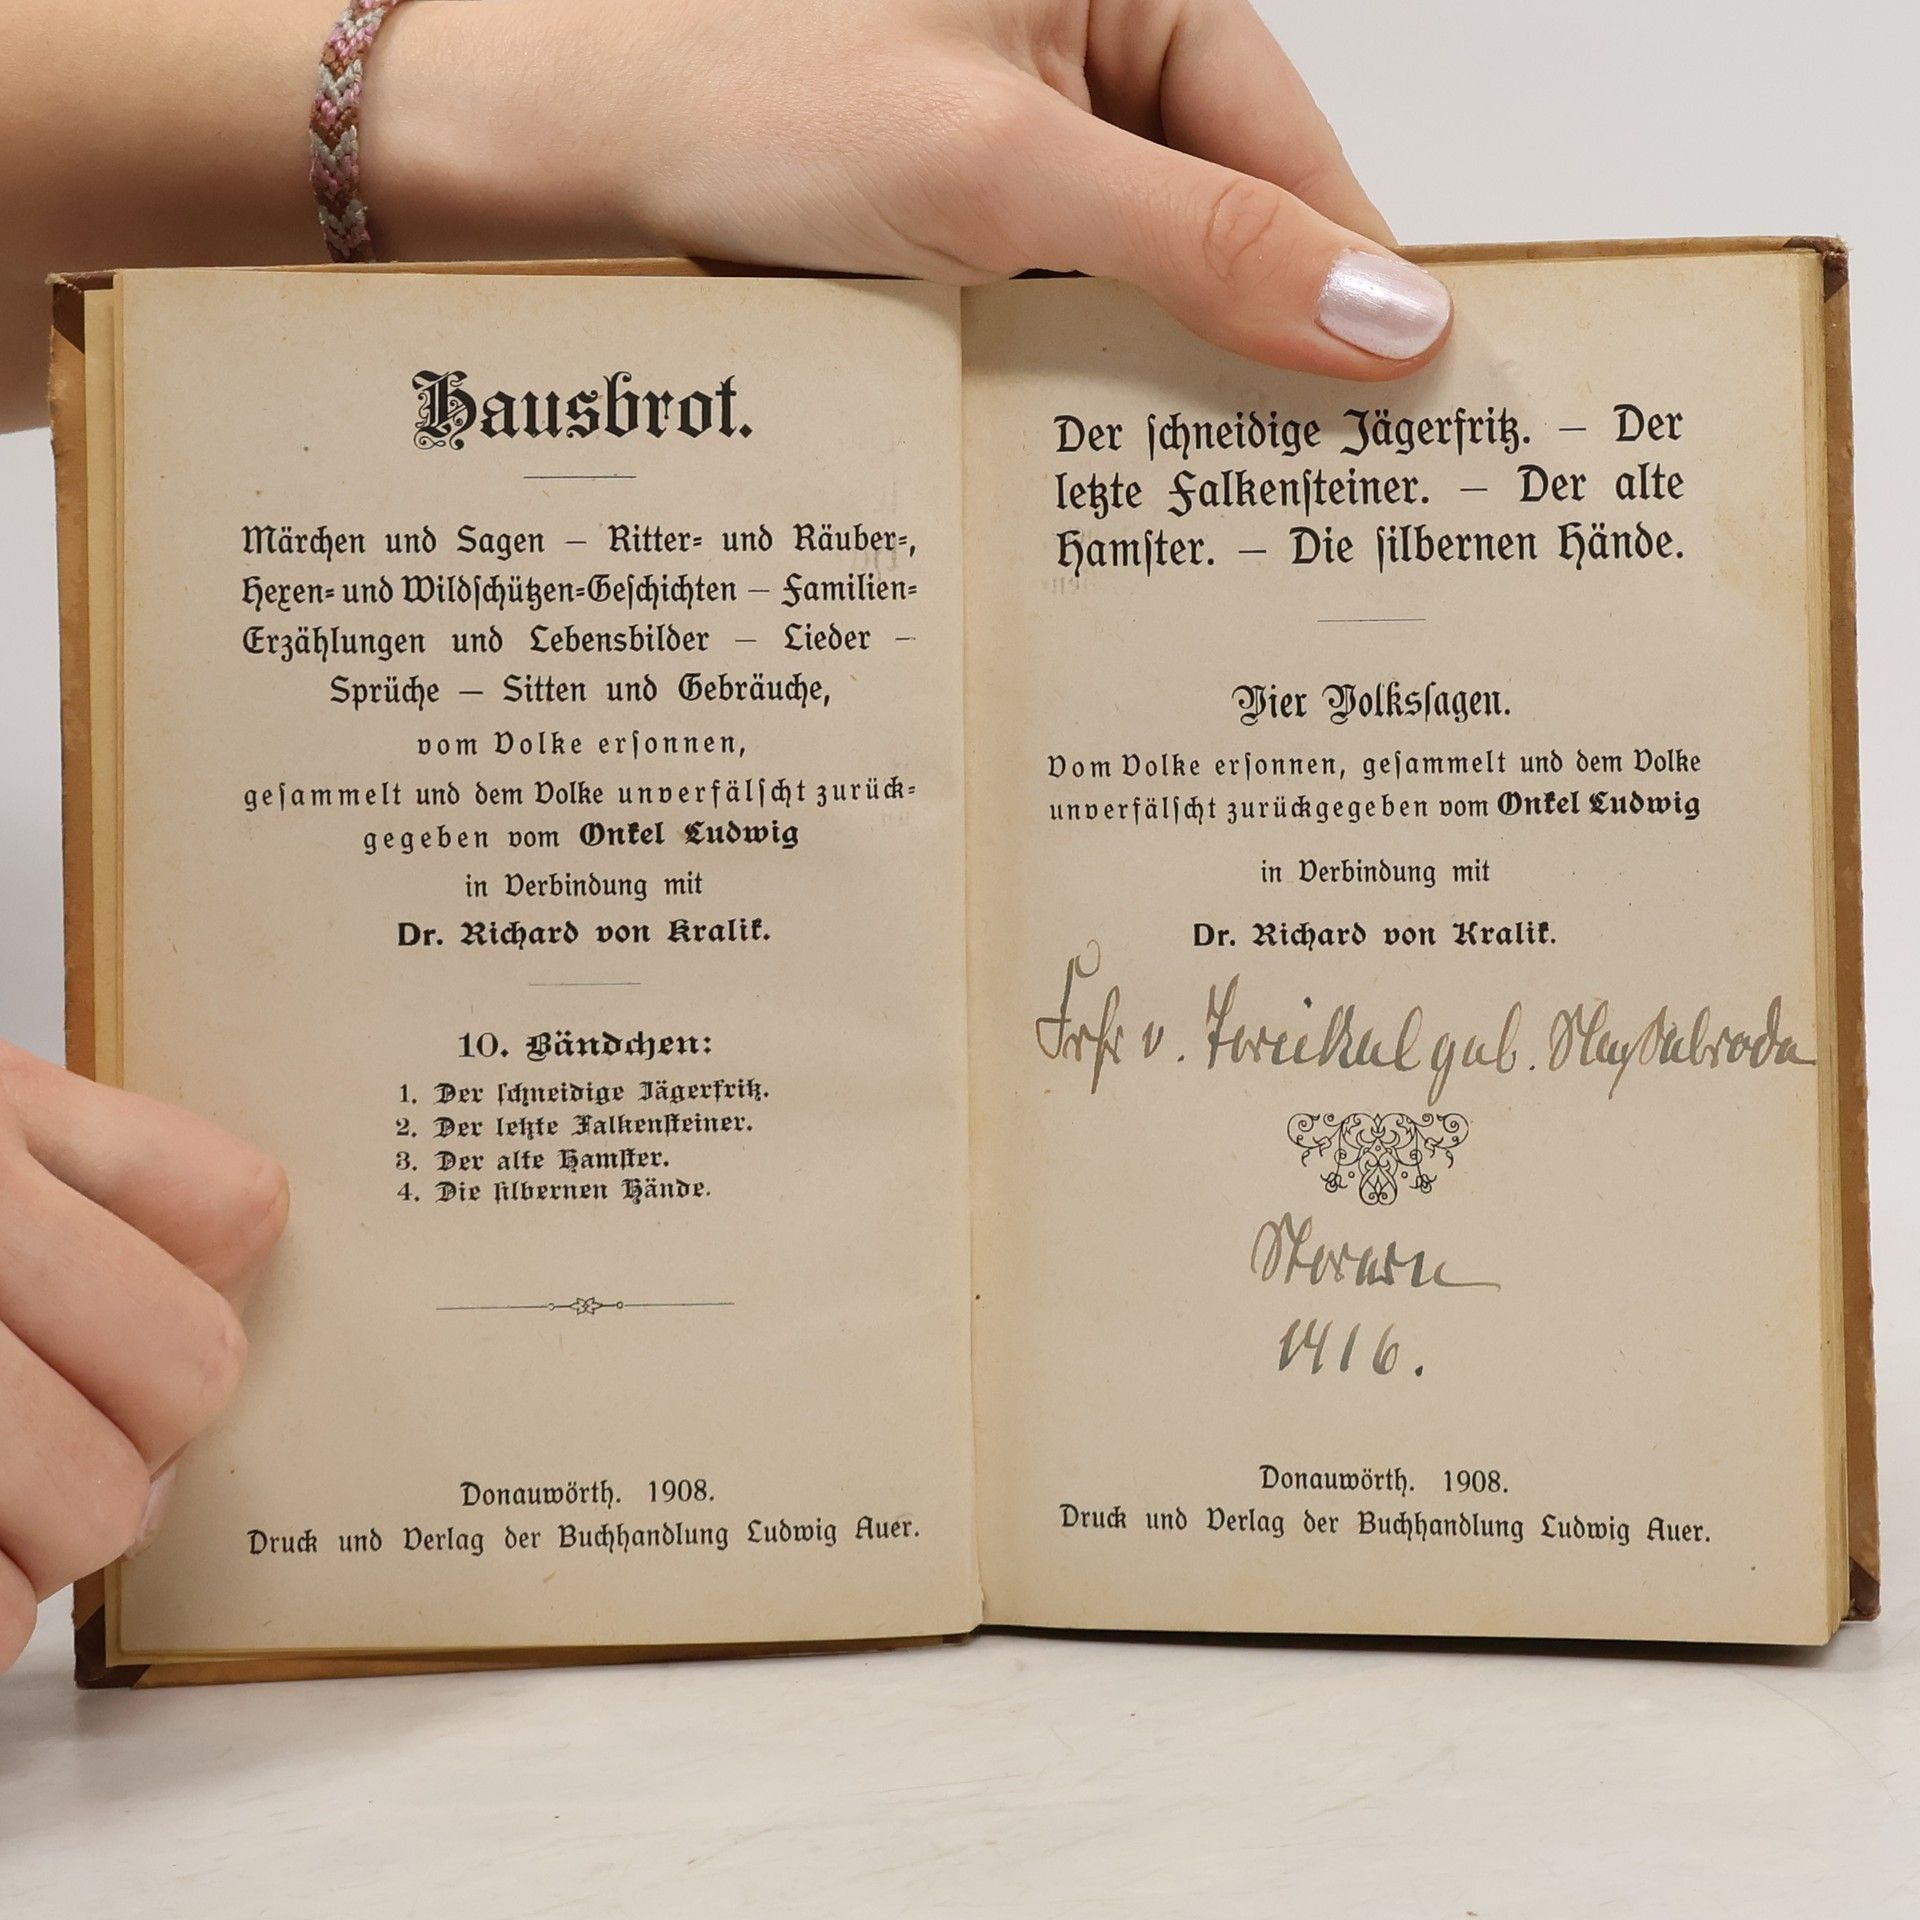 Hausbrot.
Märchen und Sagen — Ritter- und Räuber-,
Hexen- und Wildſchützen-Geſchichten — Familien-
Erzählungen und Lebensbilder — Lieder —
Sprüche — Sitten und Gebräuche,
vom Volke erſonnen,
geſammelt und dem Volke unverfälſcht zurück-
gegeben vom Onkel Ludwig
in Verbindung mit
Dr. Richard von Kralik.
10. Bändchen:
1. Der ſchneidige Jägerfritz.
2. Der letzte Falkenſteiner.
3. Der alte Hamſter.
4. Die ſilbernen Hände.
Donauwörth. 1908.
Druck und Verlag der Buchhandlung Ludwig Auer.
Der ſchneidige Jägerfritz. — Der
letzte Falkenſteiner. — Der alte
Hamſter. — Die ſilbernen Hände.
Vier Volksſagen.
Vom Volke erſonnen, geſammelt und dem Volke
unverfälſcht zurückgegeben vom Onkel Ludwig
in Verbindung mit
Dr. Richard von Kralik.
v.
1916.
Donauwörth. 1908.
Druck und Verlag der Buchhandlung Ludwig Auer.